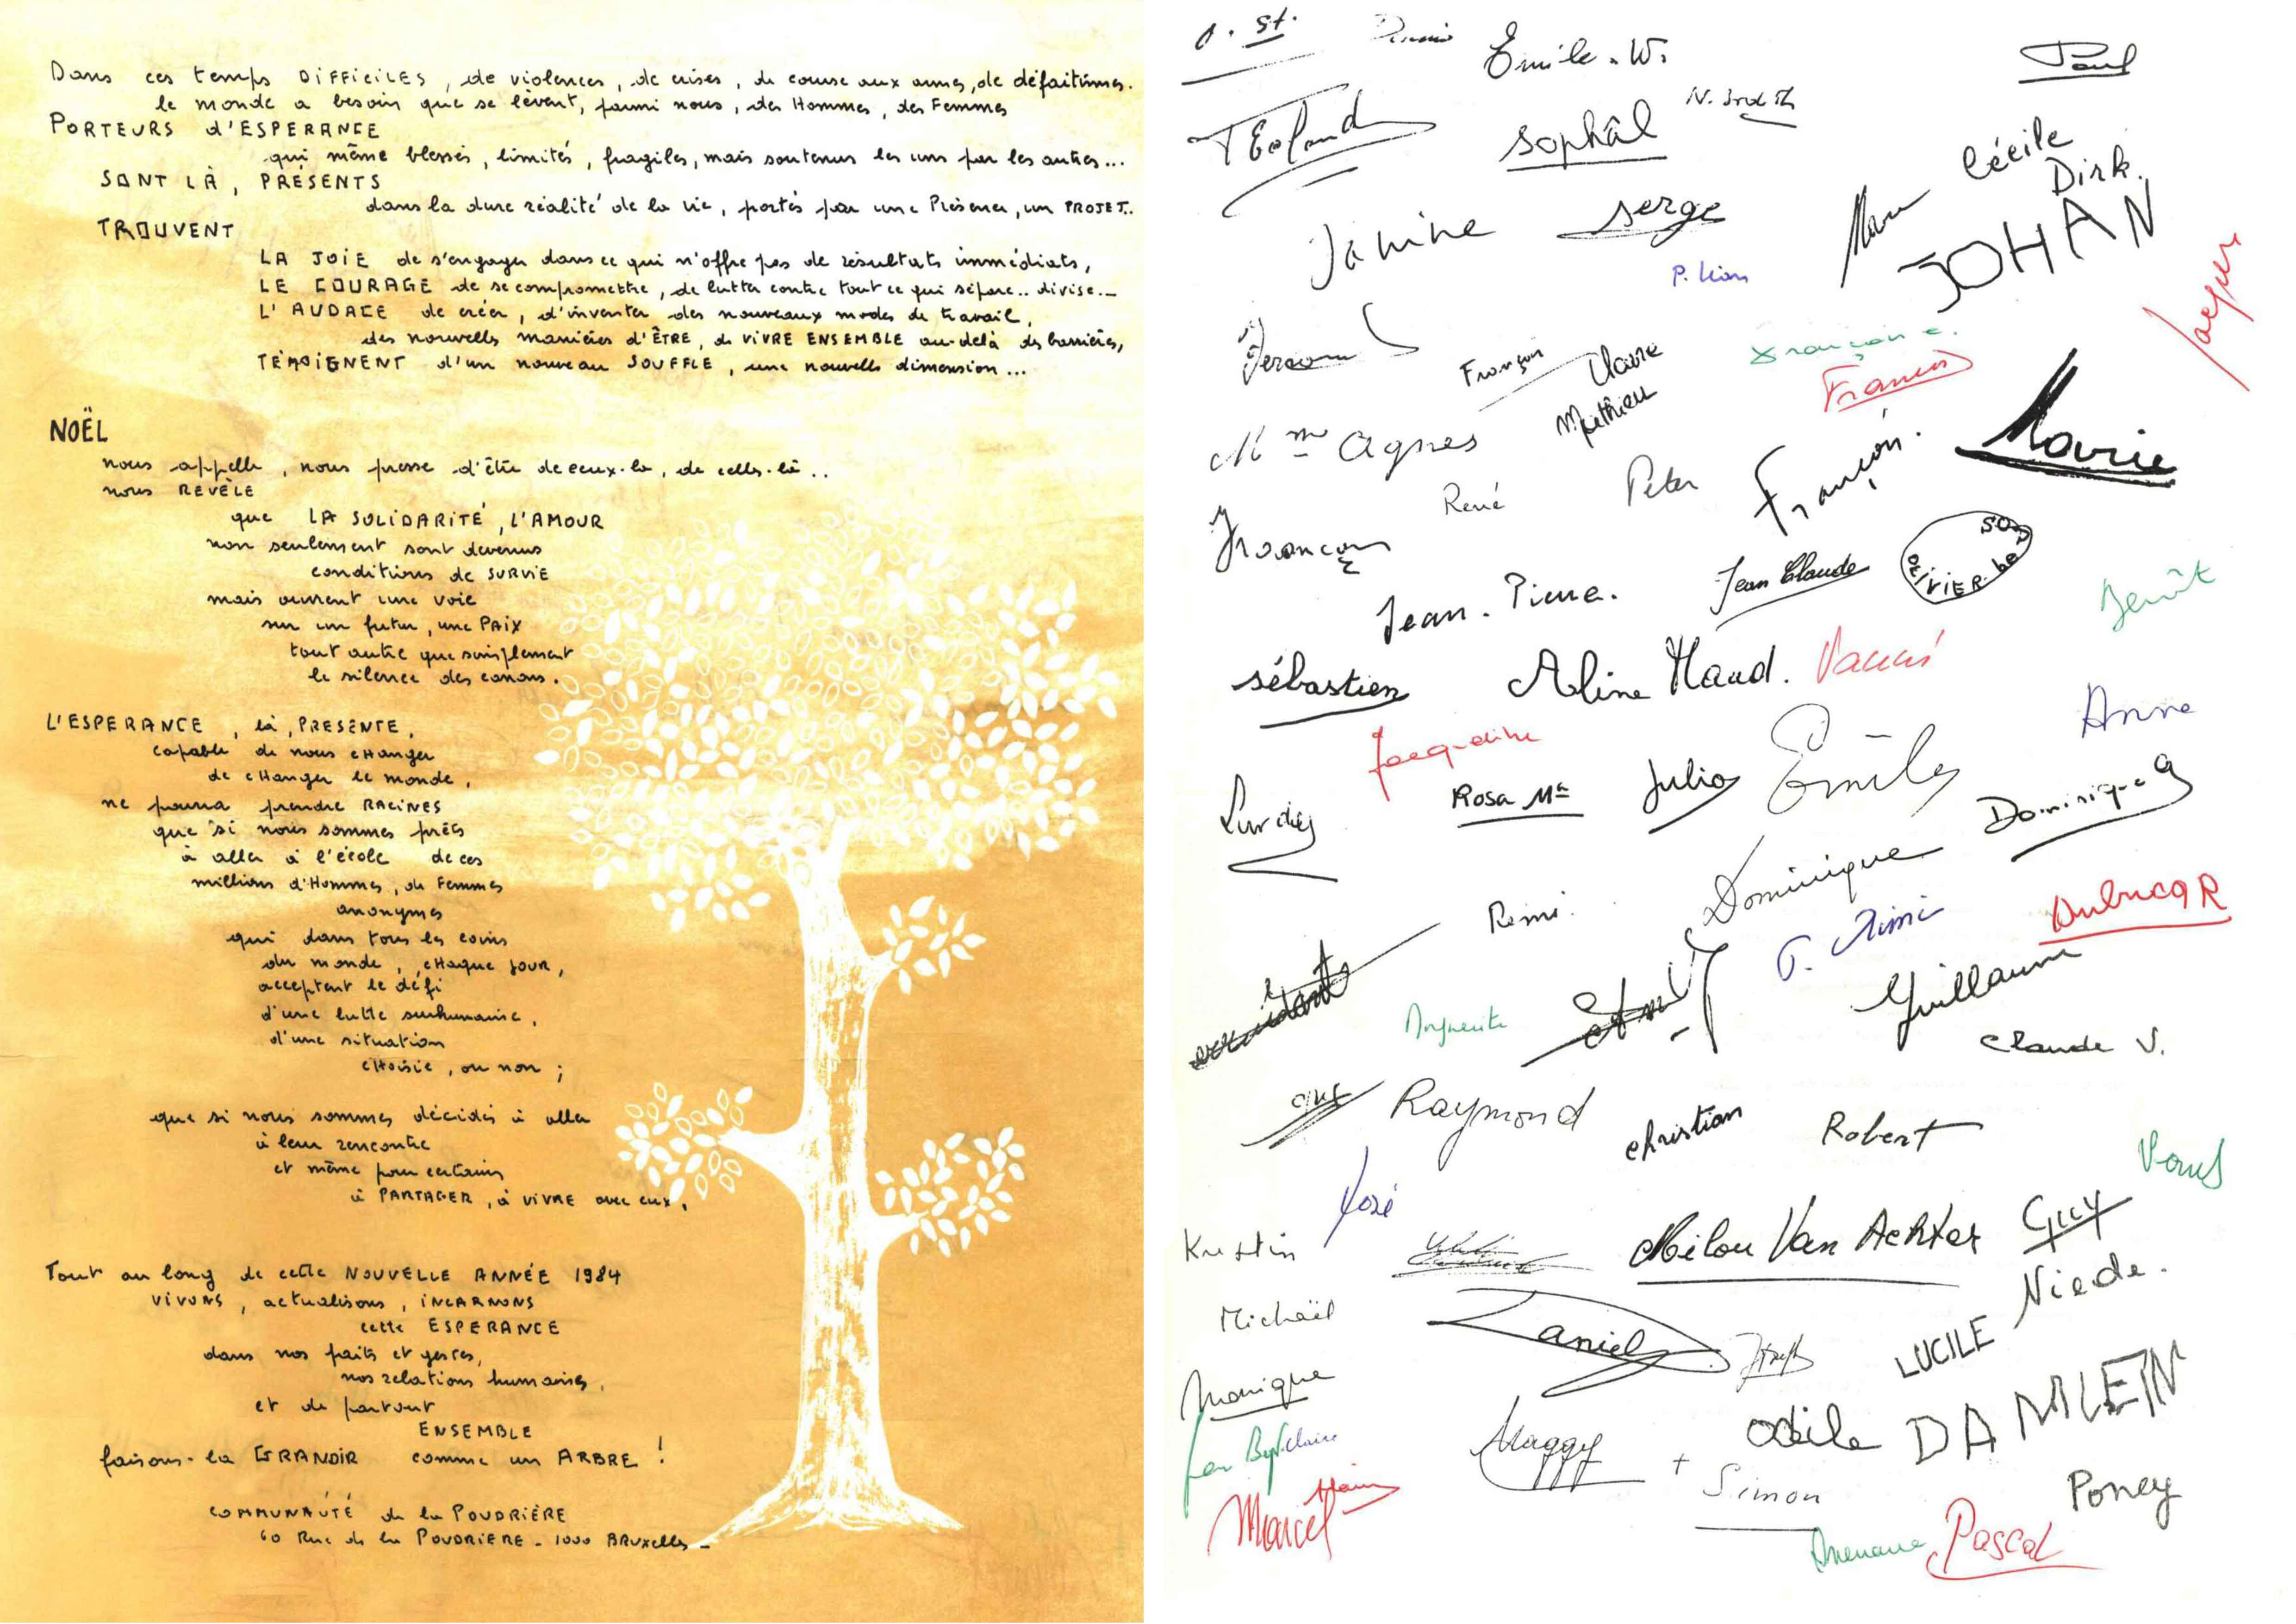 Dans ces temps DIFFICILES, de violences, de crises, de course aux armes, de défaitismes.
le monde a besoin que se lèvent, parmi nous, des Hommes, des Femmes
PORTEURS d'ESPERANCE
qui même blessés, limités, fragiles, mais soutenus les uns par les autres...
SONT LÀ, PRÉSENTS
dans la dure réalité de la vie, portés par une Présence, un PROJET..
TROUVENT
LA JOIE de s'engager dans ce qui n'offre pas de résultats immédiats,
LE COURAGE de se compromettre, de lutter contre tout ce qui sépare.. divise...
L'AUDACE de créer, d'inventer des nouveaux modes de travail,
des nouvelles manières d'ÊTRE, de VIVRE ENSEMBLE au-delà des barrières,
TÉMOIGNENT d'un nouveau SOUFFLE, une nouvelle dimension...
NOËL
nous appelle, nous presse d'être de ceux-là, de celles-là..
nous REVÈLE
que LA SOLIDARITÉ, L'AMOUR
non seulement sont devenus
conditions de SURVIE
mais ouvrent une voie
sur un futur, une PAIX
tout autre que simplement
le silence des canons.
L'ESPERANCE, là, PRESENTE,
capable de nous cHanger
de cHanger le monde,
ne pourra prendre RACINES
que si nous sommes prêts
à aller à l'école de ces
millions d'Hommes, de Femmes
anonymes
qui dans tous les coins
du monde, cHaque JOUR,
acceptent le défi
d'une lutte surhumaine,
d'une situation
cHoisie, ou non ;
que si nous sommes décidés à aller
à leur rencontre
et même pour certains
à PARTAGER, à VIVRE avec eux.
Tout au long de cette NOUVELLE ANNÉE 1984
VIVONS, actualisons, INCARNONS
cette ESPERANCE
dans nos faits et gestes,
nos relations humaines,
et de partout
ENSEMBLE
faisons-la GRANDIR comme un ARBRE !
COMMUNAUTÉ de la POUDRIÈRE
60 Rue de la POUDRIERE - 1000 BRUXelles -
Emile. W.
Paul
sophâl
Cécile
Dirk.
JOHAN
Janine
serge
P. Léon
Jacques
François
Claire
Mathieu
Françoise.
Francis
Mme Agnes
Marie
René
Peter
François.
François
Jean-Pierre.
Jean Claude
OLIVIER
Benoît
sébastien
Aline
Maud.
Jacqueline
Anne
Lurdes
Rosa Mª
Julio
Emile
Dominique G
Rémi.
Dominique
Dubucq R
Marguerite
Guillaume
Claude V.
Guy
Raymond
christian
Robert
José
Kristin
Milou Van Acker
Guy
Niede.
Michaël
Daniel
Joseph
LUCILE
Monique
Odile
DAMIEN
Claire
Maggy
+ Simon
Poney
Alain
Marcel
Pascal